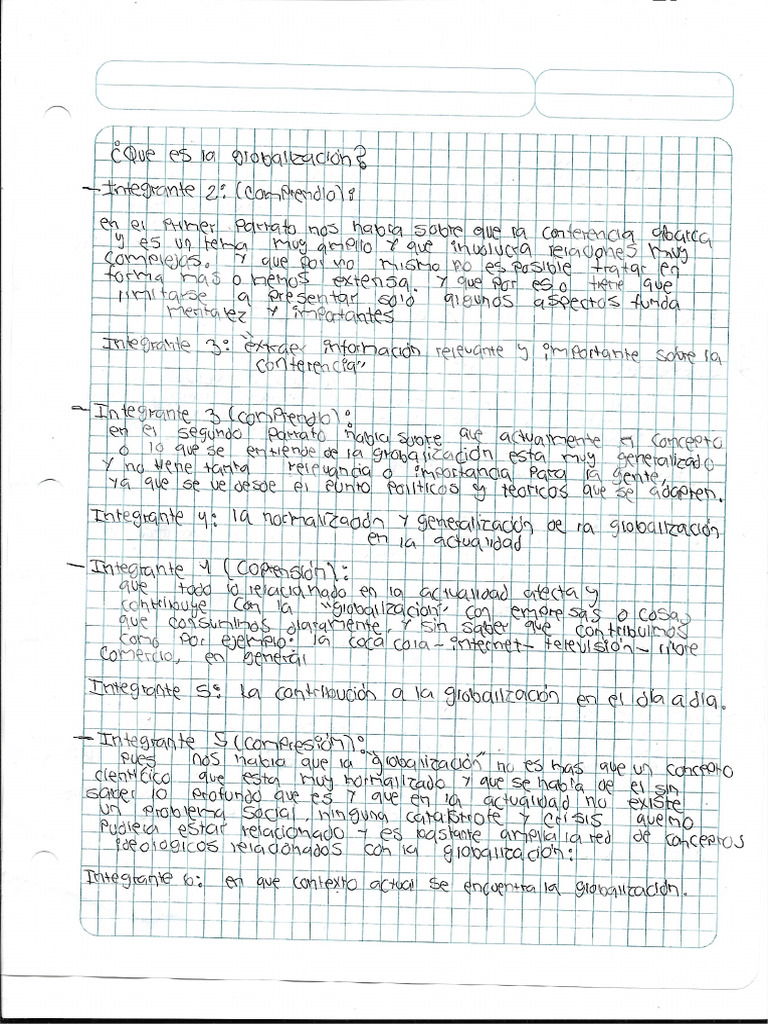 ¿Que es la globalización?
- Integrante 2: (comprendio):
en el primer parrafo nos habla sobre que la conferencia abarca
y es un tema muy amplio y que involucra relaciones muy
complejas. Y que por yo mismo no es posible tratar en
forma mas o menos extensa. Y que por eso tiene que
limitarse a presentar solo algunos aspectos funda
mentalez y importantes
Integrante 3: "extraer información relevante y importante sobre la
conferencia"
- Integrante 3 (comprendio):
en el segundo parrafo habla sobre que actualmente el concepto
o lo que se entiende de la globalización esta muy generalizado
Y no tiene tanta relevancia o importancia para la gente,
ya que se ve desde el punto politicos y teoricos que se adapten.
Integrante 4: la normalización y generalización de la globalización
en la actualidad
- Integrante 4 (coprensión):
que todo lo relacionado en la actualidad afecta y
contribuye con la "globalización" con empresas o cosas
que consumimos diaramente, y sin saber que contribuimos
como por ejemplo: la coca cola - internet - televisión - libre
comercio, en general
Integrante 5: la contribución a la globalización en el dia a dia.
- Integrante 5 (compresión):
pues nos habla que la "globalización" no es mas que un concepto
cientifico que esta muy normalizado y que se habla de el sin
saber lo profundo que es y que en la actualidad no existe
un problema social, ninguna catastrofe y crisis que no
pudiera estar relacionado y es bastante amplia la red de conceptos
ideologicos relacionados con la globalización:
Integrante 6: en que contexto actual se encuentra la globalización.